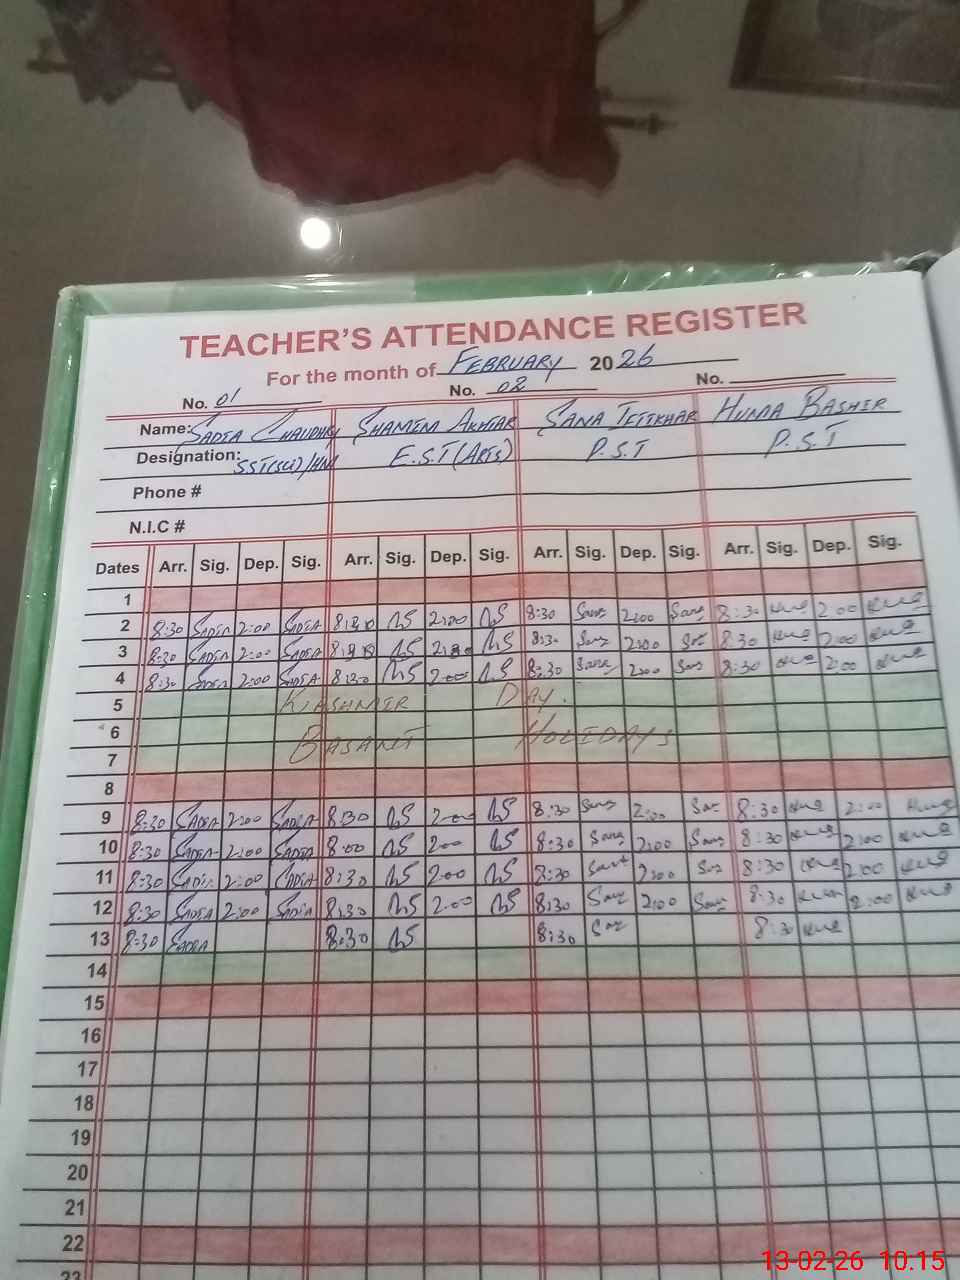 TEACHER'S ATTENDANCE REGISTER
For the month of FEBRUARY 2026
No. 01 No. 02 No.
Name: SADIA CHAUDHRY SHAMIM AKHTAR SANA IFTIKHAR HUMA BASHIR
Designation: SST(SCI)/HM E.S.T (ARTS) P.S.T P.S.T
Phone #
N.I.C #
Dates Arr. Sig. Dep. Sig. Arr. Sig. Dep. Sig. Arr. Sig. Dep. Sig. Arr. Sig. Dep. Sig.
1
2 8:30 SADIA 2:00 SADIA 8:30 2:00 8:30 Sana 2:00 Sana 8:30 2:00
3 8:30 SADIA 2:00 SADIA 8:30 2:00 8:30 Sana 2:00 8:30 2:00
4 8:30 SADIA 2:00 SADIA 8:30 2:00 8:30 Sana 2:00 Sana 8:30 2:00
5 KASHMIR DAY.
6
7 BASANT HOLIDAYS
8
9 8:30 SADIA 2:00 SADIA 8:30 2:00 8:30 Sana 2:00 8:30 2:00
10 8:30 SADIA 2:00 SADIA 8:00 2:00 8:30 Sana 2:00 Sana 8:30 2:00
11 8:30 SADIA 2:00 SADIA 8:30 2:00 8:30 Sana 2:00 8:30 2:00
12 8:30 SADIA 2:00 SADIA 8:30 2:00 8:30 Sana 2:00 Sana 8:30 2:00
13 8:30 SADIA 8:30 8:30 8:30
14
15
16
17
18
19
20
21
22
23
13-02-26 10.15